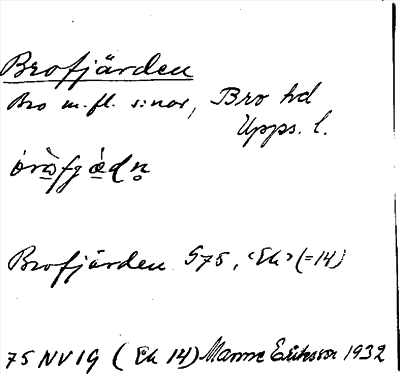 Brofjärden
Bro m.fl. s:nar, Bro hd
Upps. l.
Brofjärden S75, "Ek" (=14)
75 NV 19 (Ek 14) Manne Eriksson 1932